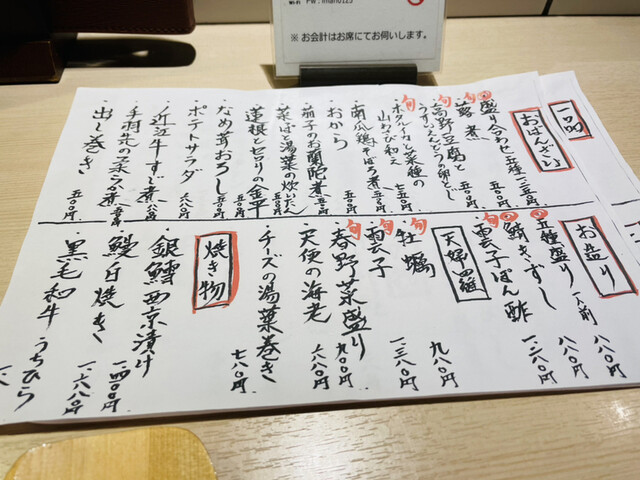 ※ お会計はお席にてお伺いします。
一品
おばんざい
盛り合わせ 五種 一二五〇円
旬 蕗煮 五五〇円
旬 高野豆腐と
うすいえんどうの卵とじ
旬 ホタルイカと菜種の
山わさび和え 七五〇円
南瓜鶏そぼろ煮 五五〇円
おから 五五〇円
茄子のお蘭陀煮 五五〇円
菜っぱと湯葉の炊いたん 五五〇円
蓮根とセロリの金平 五五〇円
なめ茸おろし 五五〇円
ポテトサラダ 六八〇円
近江牛すじ煮
手羽先の
出し巻き 五五〇円
お造り
五種盛り 一人前 一八〇〇円
鯖きずし 八八〇円
旬 雲子ぽん酢 一二八〇円
天婦羅
旬 牡蠣 九八〇円
旬 雲子 一三八〇円
旬 春野菜盛り 九八〇円
天使の海老 六八〇円
チーズの湯葉巻き 七八〇円
焼き物
銀鱈西京漬け
鰻白焼き 一四〇〇円
黒毛和牛うちひら 一六八〇円